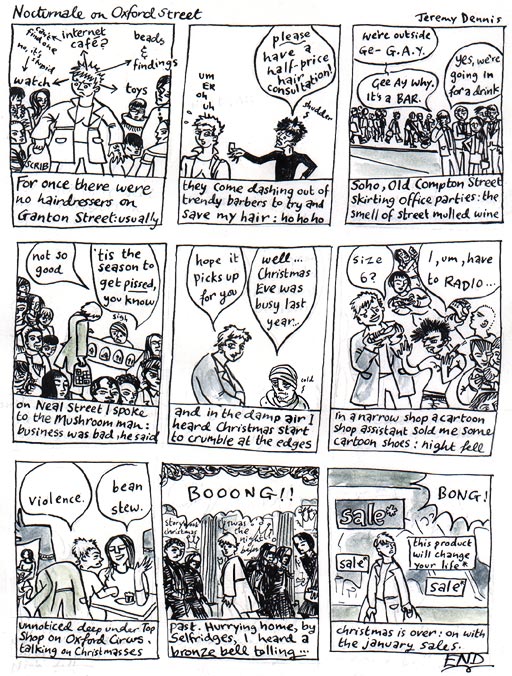 Nocturnale on Oxford Street
Jeremy Dennis
internet
cafe?
can't
find one
no, it's
stupid
beads
&
findings
watch
toys
SCRIB
For once there were
no hairdressers on
Ganton Street: usually
um
ER
oh
uh
please
have a
half-price
hair
consultation!
shudder
they come dashing out of
trendy barbers to try and
save my hair: ho ho ho
we're outside
Ge- G.A.Y.
Gee Ay Why.
It's a BAR.
yes, we're
going in
for a drink
Soho, Old Compton Street
skirting office parties: the
smell of street mulled wine
not so
good
'tis the
season to
get pissed,
you know
sigh
on Neal Street I spoke
to the Mushroom man:
business was bad, he said
hope it
picks up
for you
well...
Christmas
Eve was
busy last
year...
cold
and in the damp air I
heard Christmas start
to crumble at the edges
size
6?
I, um, have
to RADIO...
in a narrow shop a cartoon
shop assistant sold me some
cartoon shoes: night fell
violence.
bean
stew.
unnoticed deep under Top
Shop on Oxford Circus.
talking on Christmasses
BOOONG!!
story
christmas
'twas
the
night
before
past. Hurrying home, by
Selfridges, I heard a
bronze bell tolling...
BONG!
sale*
sale*
this product
will change
your life*
sale*
christmas is over: on with
the january sales.
END